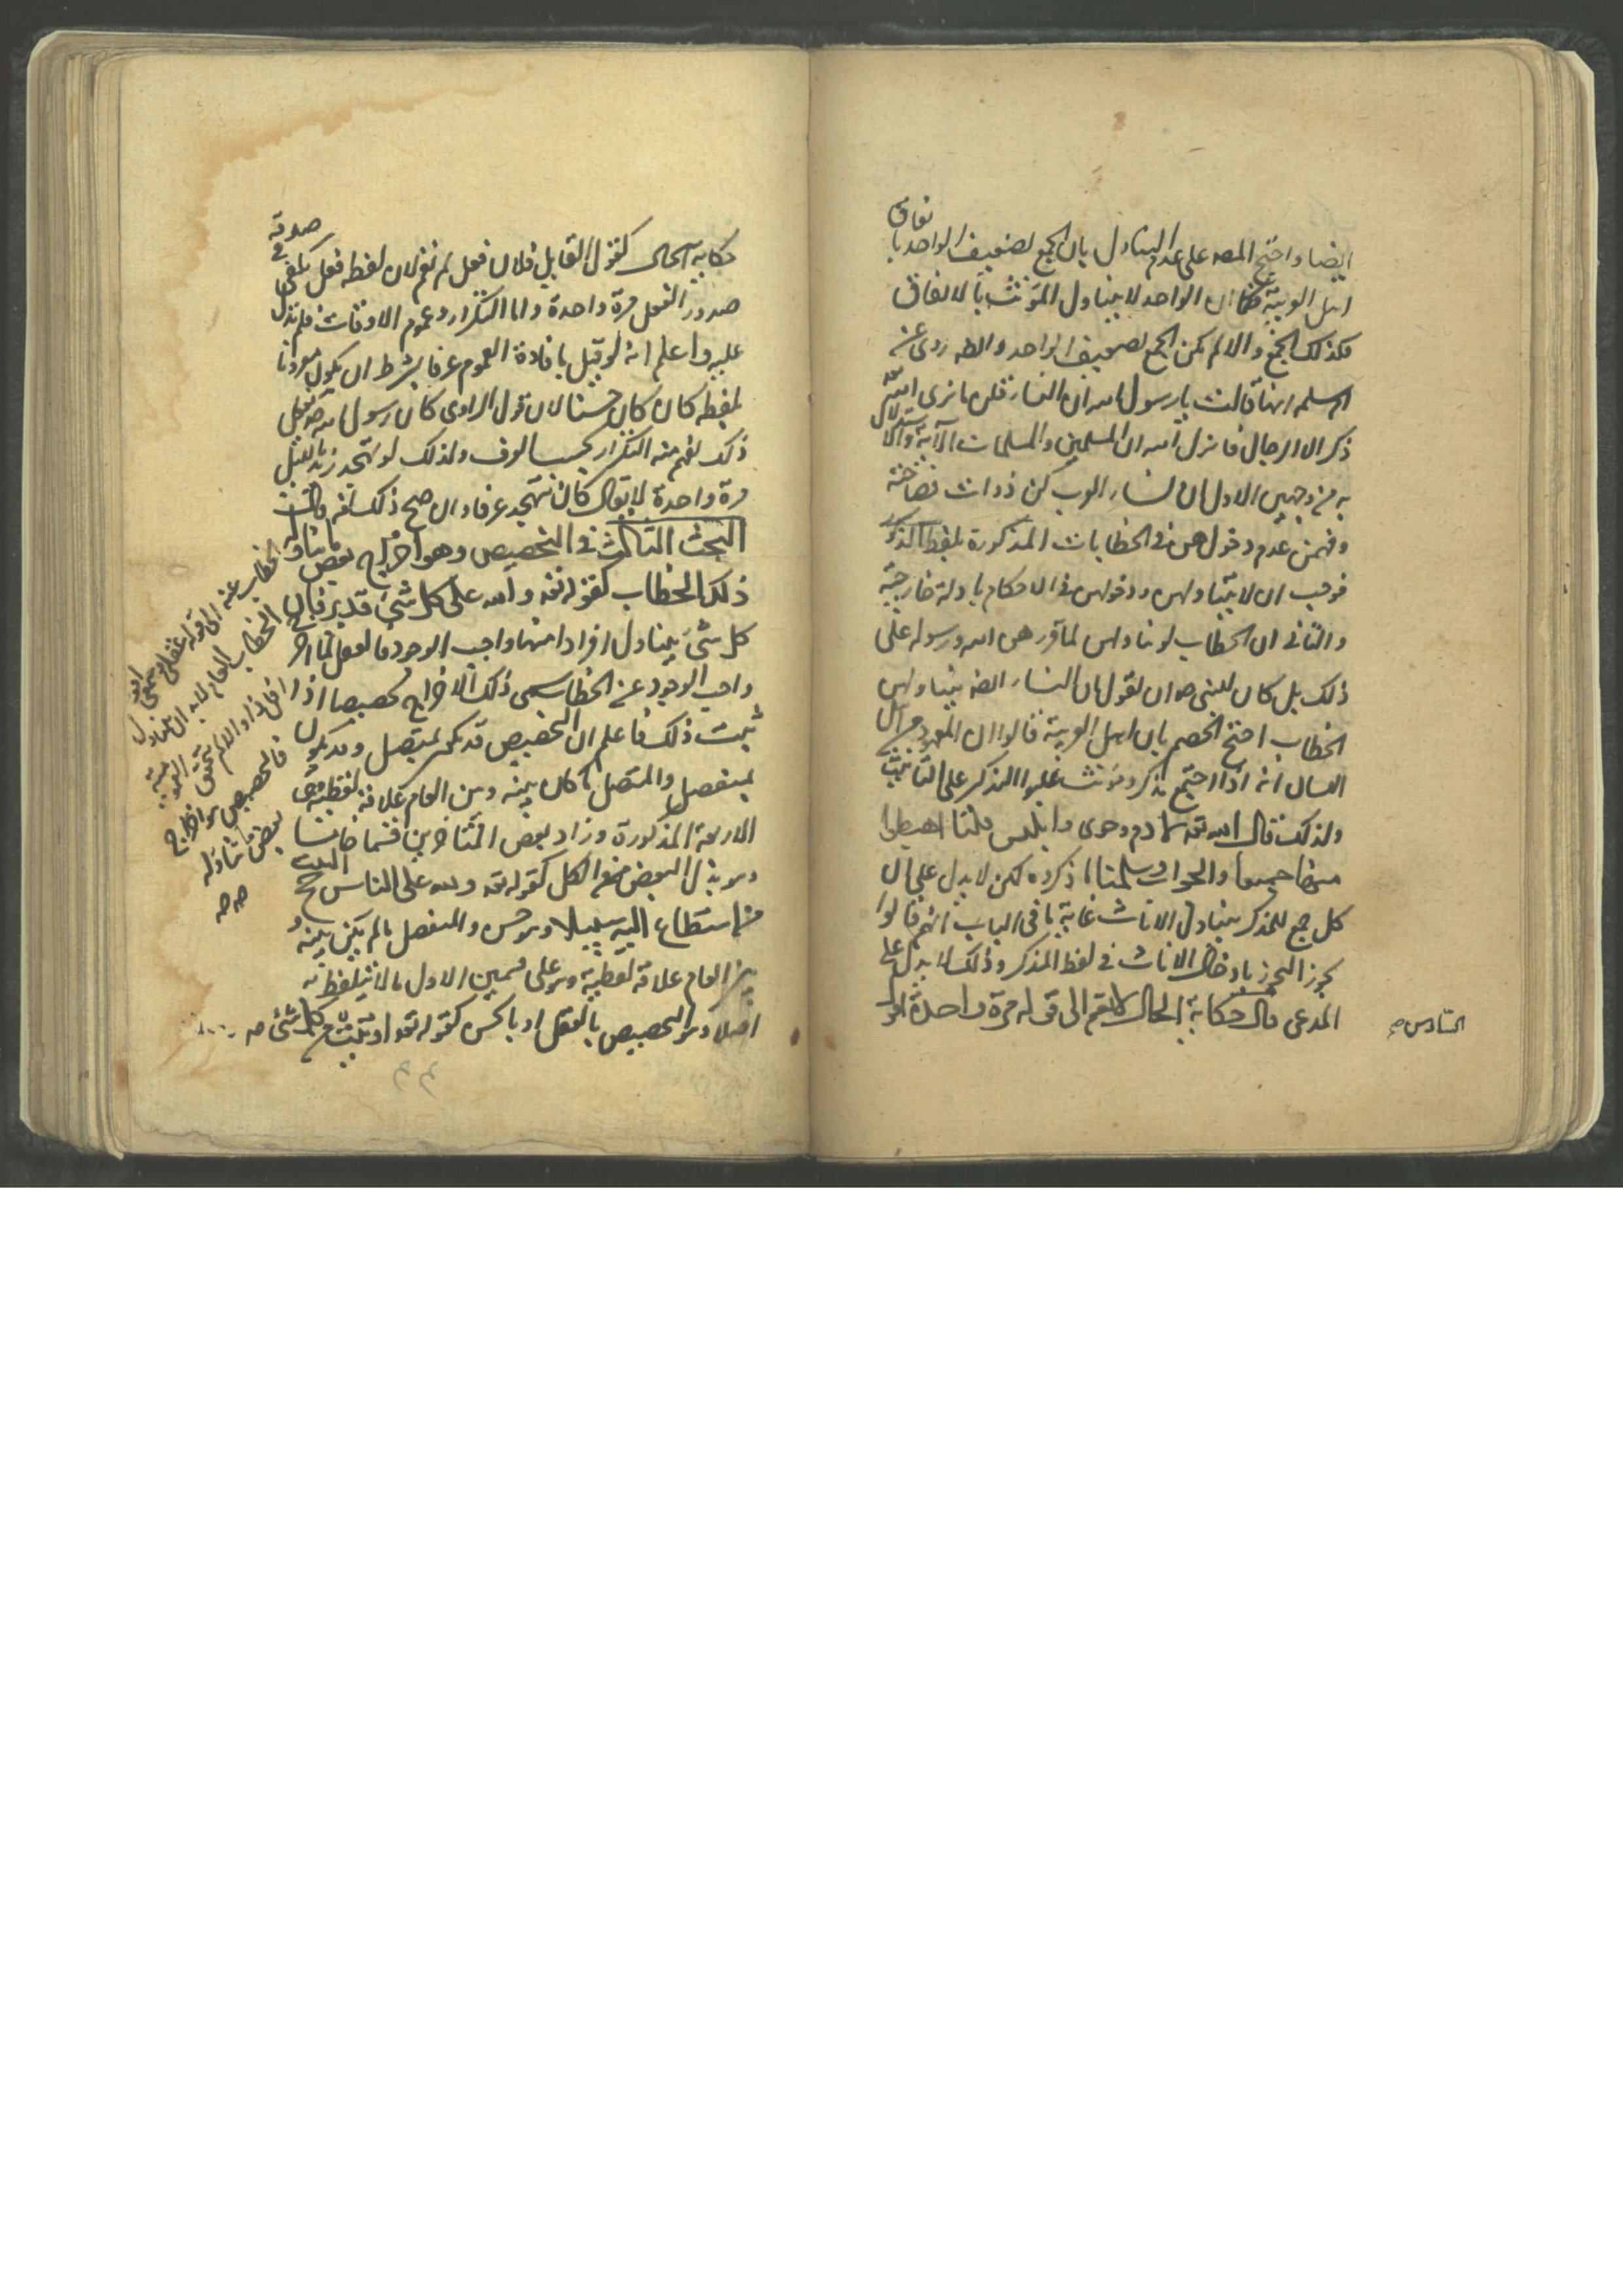 ايضا واحتج المصه على عدم التناول بان الجمع لضعيف الواحد با
تفاق
اهل العربية فكما ان الواحد لا يتناول المؤنث بالاتفاق
فكذلك الجمع والا لم يكن الجمع لضعيف الواحد والظ روى عن
ام سلمه انها قالت يا رسول الله ان النساء قلن ما نرى الله
ذكر الا الرجال فانزل الله ان المسلمين والمسلمات الآية والاستدلال
به من وجهين الاول ان نساء العرب كن ذوات فصاحة
وفهمن عدم دخولهن في الخطابات المذكورة بلفظ الذكور
فوجب ان لا يتناولهن ودخولهن في الاحكام بادلة خارجية
والثاني ان الخطاب لو تناولهن لما قررهن الله ورسوله على
ذلك بل كان للنبي صه ان يقول ان النساء ايضه يتناولهن
الخطاب احتج الخصم بان اهل العربية قالوا ان المعهود من اهل
اللسان انه اذا اجتمع مذكر ومؤنث غلبوا المذكر على التانيث
ولذلك قال الله تعه لآدم وحوى وابليس قلنا اهبطوا
منها جميعا والجواب سلمنا ما ذكروه لكن لا يدل على ان
كل جمع للمذكر يتناول الاناث غاية ما في الباب انهم قالوا
يجوز التجوز بادخال الاناث في لفظ المذكر وذلك لا يدل على
المدعى قال حكاية الحال لا تعم الى قوله مرة واحدة اقول
السادس صح
حكاية الحال كقول القايل فلان فعل لم تعم لان لفظه فعل يكفى في
صدقه
صدور الفعل مرة واحدة واما التكرار وعموم الاوقات فلم يدل
عليه واعلم انه لو قيل بافادة العموم عرفا بشرط ان يكون مقرونا
بلفظه كان كان حسنا لان قول الراوى كان رسول الله صه يفعل
ذلك يفهم منه التكرار بحسب العرف ولذلك لو تهجد زيد بالليل
مرة واحدة لا يقال كان يتهجد عرفا وان صح ذلك لغه قال
البحث الثالث في التخصيص وهو اخراج بعض ما يتناوله
ذلك الخطاب كقوله تعه والله على كل شئ قدير فبان
كل شئ يتناول افرادا منها واجب الوجود فالعقل لما اخرج
واجب الوجود عن الخطاب سمى ذلك الاخراج تخصيصا اذا
ثبت ذلك فاعلم ان التخصيص قد يكون بمتصل وقد يكون
بمنفصل والمتصل ما كان بينه وبين العام علاقة لفظية وهى
الاربعة المذكورة وزاد بعض المتاخرين قسما خامسا
وهو بدل البعض من الكل كقوله تعه ولله على الناس حج البيت
من استطاع اليه سبيلا وهو حسن والمنفصل ما لم يكن بينه و
بين العام علاقة لفظية وهو على قسمين الاول ما لا يتلفظ به
اصلا وهو التخصيص بالعقل او بالحس كقوله تعه اوتيت من كل شئ صه
الخطاب عنه الى قوله عقلى او سمعى اقول
الخطاب العام لا بد ان يتناول
افرادا والا لم يتحقق العمومية
فالتخصيص هو اخراج
بعض ما تناوله
صه صه